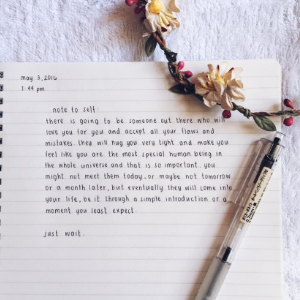 may 3, 2016
1:44 pm
note to self:
there is going to be someone out there who will
love you for you and accept all your flaws and
mistakes. they will hug you very tight and make you
feel like you are the most special human being in
the whole universe and that is so important. you
might not meet them today, or maybe not tomorrow
or a month later, but eventually they will come into
your life, be it through a simple introduction or a
moment you least expect.
just wait.